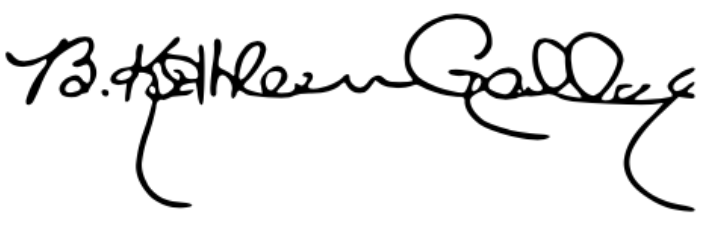 B. Kathleen Gallag